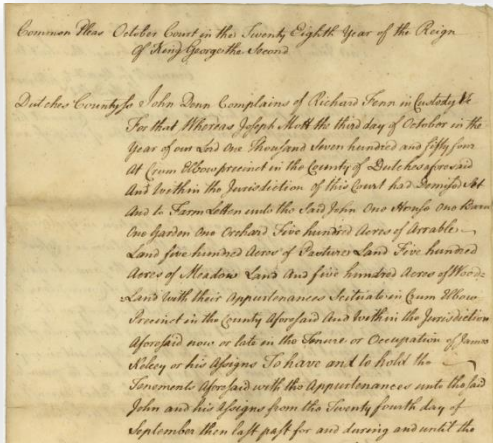 Common Pleas October Court in the Twenty Eighth Year of the Reign
of King George the Second
Dutches County ss John Denn Complains of Richard Fenn in Custody &c
For that Whereas Joseph Mott the third day of October in the
Year of our Lord One Thousand Seven hundred and fifty four
At Crum Elbow precinct in the County of Dutches aforesaid
And Within the Jurisdiction of this Court had Demised Set
And to Farm Letten unto the Said John One House One Barn
One Garden One Orchard Five hundred Acres of Arrable
Land five hundred Acres of Pasture Land Five hundred
Acres of Meadow Land And five hundred Acres of Wood
Land with their Appurtenances Scituate in Crum Elbow
Precinct in the County Aforesaid And Within the Jurisdiction
Aforesaid now or late in the Tenure or Occupation of James
Kelcey or his Assigns To have and to hold the
Tenements Aforesaid with the Appurtenances unto the said
John and his Assigns from the Twenty fourth day of
September then last past for and during and until the